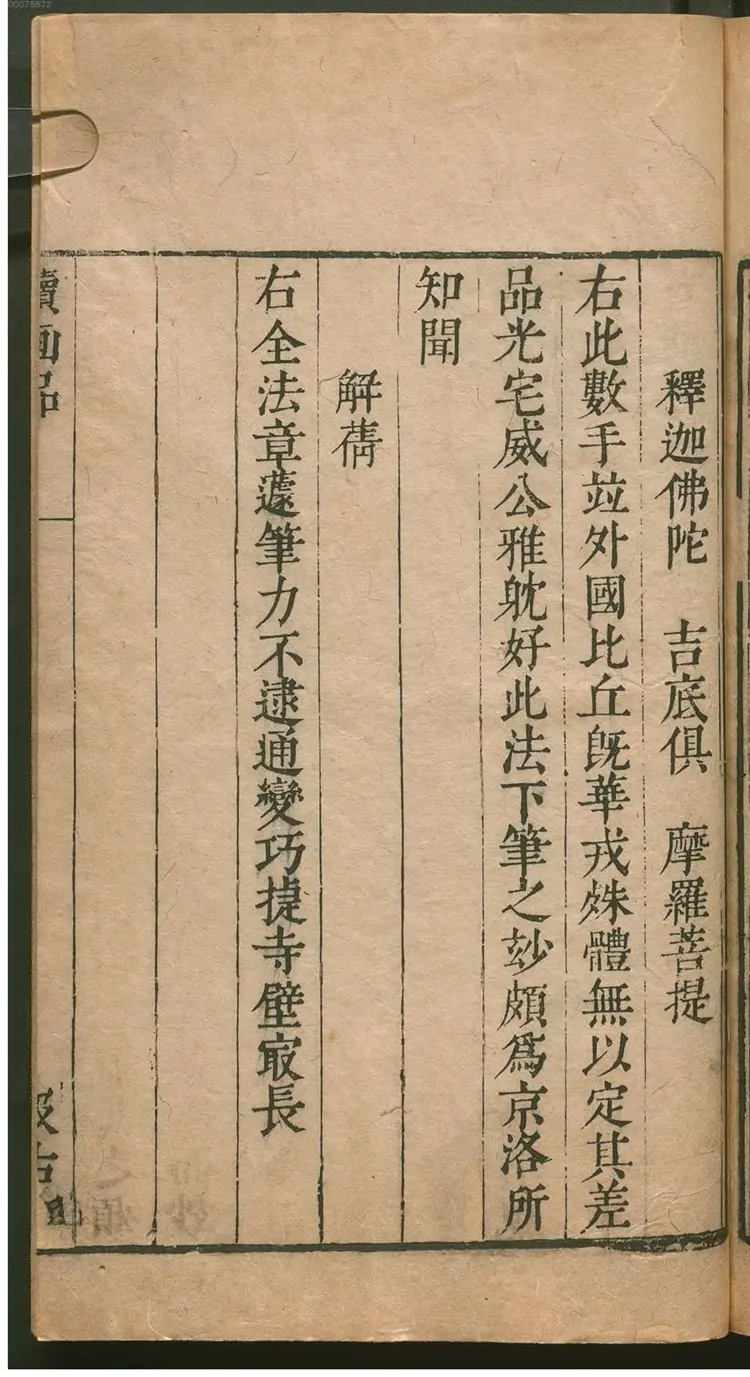 釋迦佛陀　吉底俱　摩羅菩提
右此數手竝外國比丘旣華戎殊體無以定其差
品光宅威公雅躭好此法下筆之玅頗爲京洛所
知聞
解蒨
右全法章蘧筆力不逮通變巧捷寺壁㝡長
續画品
汲古
00075872